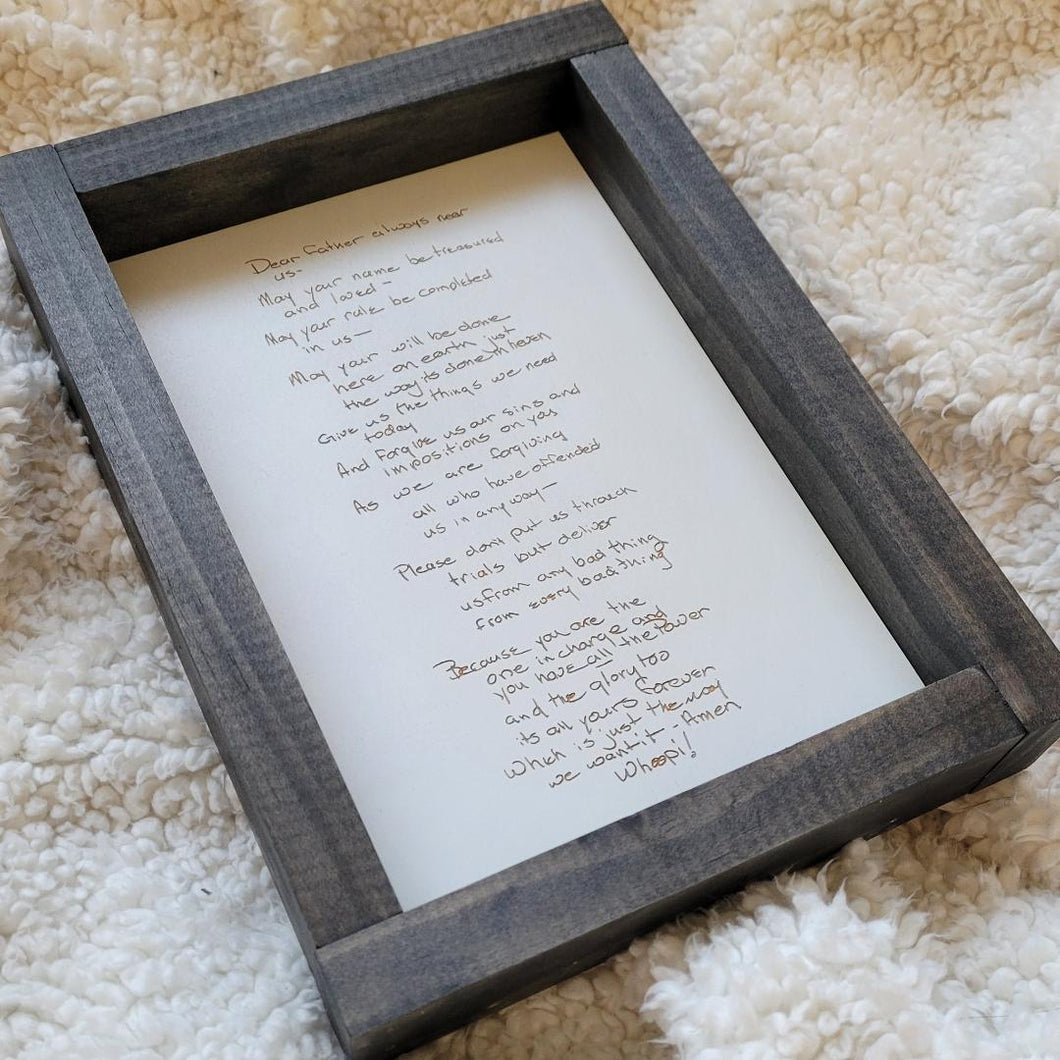 Dear Father always near
us-
May your name be treasured
and loved-
May your rule be completed
in us-
May your will be done
here on earth just
the way its done in heven
Give us the things we need
today
And Forgive us our sins and
impositions on you
As we are forgiving
all who have offended
us in any way-
Please don't put us through
trials but deliver
us from any bad thing
from every bad thing
Because you are the
one in charge and
you have all the Power
and the glory too
its all yours forever
which is just the way
we want it. Amen
Whoopi!